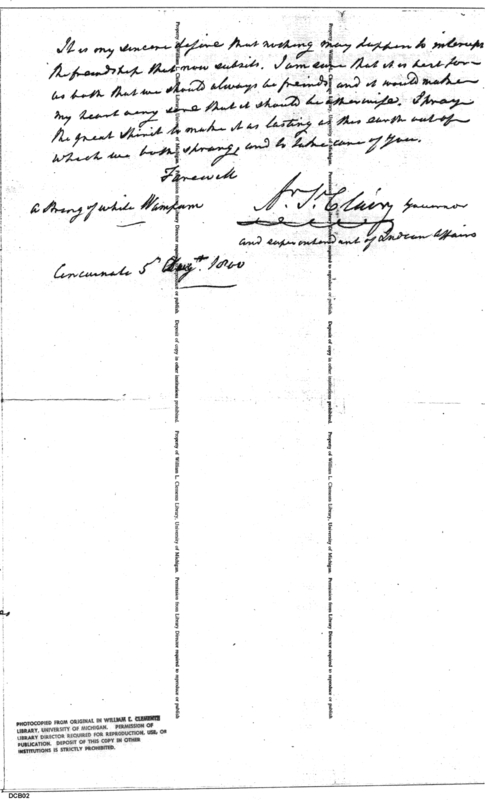 It is my sincere desire that nothing may happen to interrupt
the freindship that now subsists. I am sure that it is best for
us both that we should always be freinds, and it would make
my heart very sore that it should be otherwise. I pray
the great Spirit to make it as lasting as this earth out of
which we both sprang, and to take care of you.
Farewell
a String of white Wampum
Ar. St. Clair, Governor
and superintendant of Indian Affairs
Cincinnati 5th Augt. 1800
Property of William L. Clements Library, University of Michigan. Permission from Library Director required to reproduce or publish. Deposit of copy in other institutions prohibited.
Property of William L. Clements Library, University of Michigan. Permission from Library Director required to reproduce or publish
PHOTOCOPIED FROM ORIGINAL IN WILLIAM L. CLEMENTS
LIBRARY, UNIVERSITY OF MICHIGAN. PERMISSION OF
LIBRARY DIRECTOR REQUIRED FOR REPRODUCTION, USE, OR
PUBLICATION. DEPOSIT OF THIS COPY IN OTHER
INSTITUTIONS IS STRICTLY PROHIBITED.
DCB02